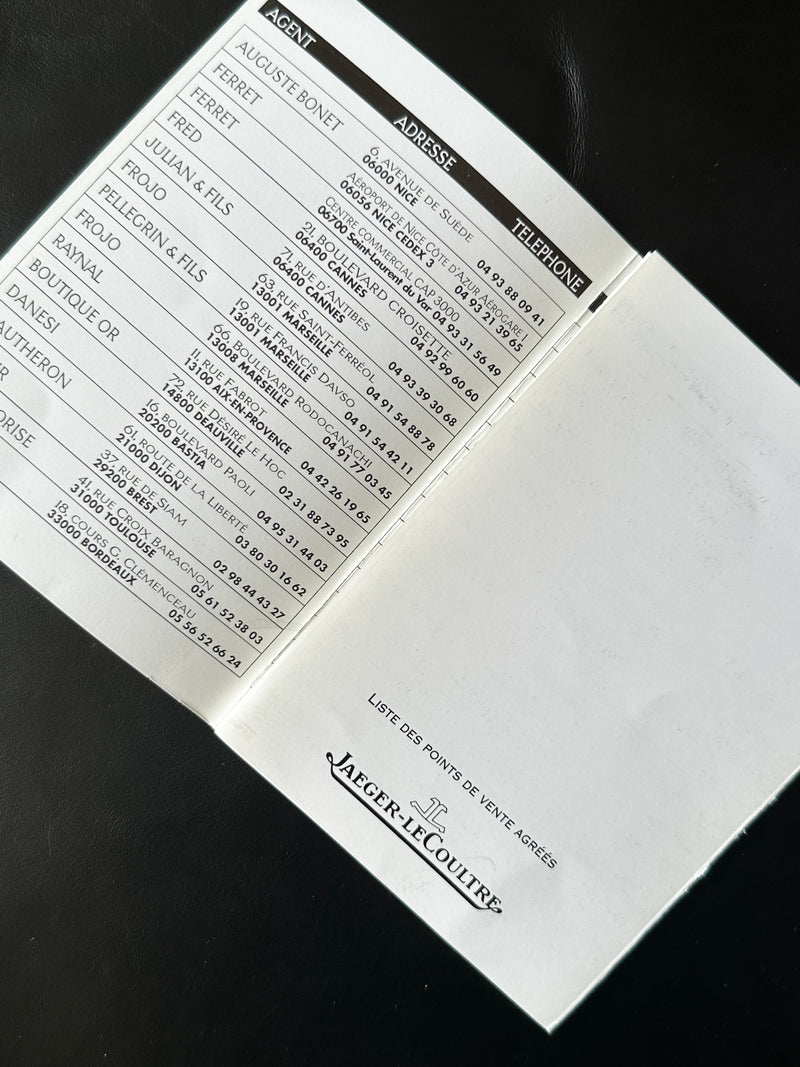 AGENT ADRESSE TELEPHONE
AUGUSTE BONET 6, AVENUE DE SUÈDE
06000 NICE 04 93 88 09 41
FERRET AÉROPORT DE NICE CÔTE D'AZUR AÉROGARE I
06056 NICE CEDEX 3 04 93 21 39 65
FERRET CENTRE COMMERCIAL CAP 3000
06700 Saint-Laurent du Var 04 93 31 56 49
FRED 21, BOULEVARD CROISETTE
06400 CANNES 04 92 99 60 60
JULIAN & FILS 71, RUE D'ANTIBES
06400 CANNES 04 93 39 30 68
FROJO 63, RUE SAINT-FERRÉOL
13001 MARSEILLE 04 91 54 88 78
PELLEGRIN & FILS 19, RUE FRANCIS DAVSO
13001 MARSEILLE 04 91 54 42 11
FROJO 66, BOULEVARD RODOCANACHI
13008 MARSEILLE 04 91 77 03 45
RAYNAL 11, RUE FABROT
13100 AIX-EN-PROVENCE 04 42 26 19 65
BOUTIQUE OR 72, RUE DÉSIRÉ LE HOC
14800 DEAUVILLE 02 31 88 73 95
DANESI 16, BOULEVARD PAOLI
20200 BASTIA 04 95 31 44 03
AUTHERON 61, ROUTE DE LA LIBERTÉ
21000 DIJON 03 80 30 16 62
ER 37, RUE DE SIAM
29200 BREST 02 98 44 43 27
ORISE 41, RUE CROIX BARAGNON
31000 TOULOUSE 05 61 52 38 03
18, COURS G. CLÉMENCEAU
33000 BORDEAUX 05 56 52 66 24
LISTE DES POINTS DE VENTE AGRÉÉS
JL
JAEGER-LECOULTRE